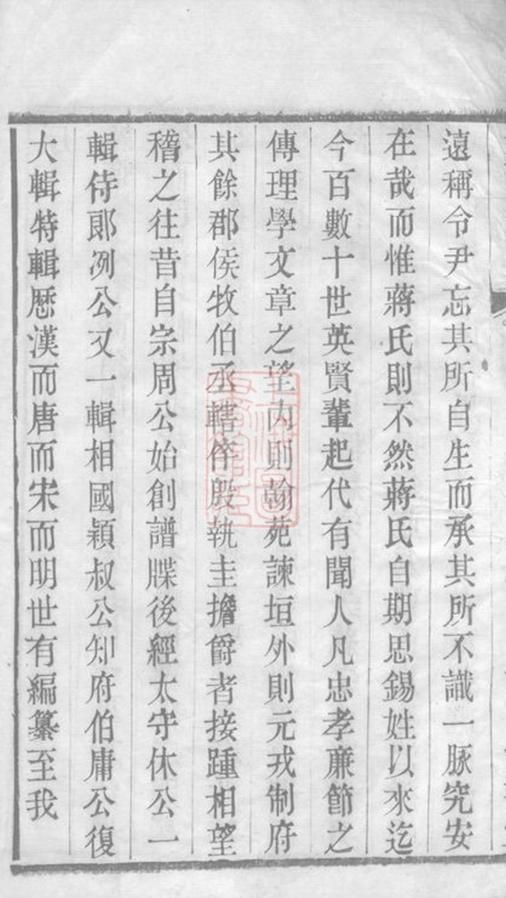 遠稱令尹忘其所自生而承其所不識一脉究安
在哉而惟蔣氏則不然蔣氏自期思錫姓以來迄
今百數十世英賢輩起代有聞人凡忠孝廉節之
傳理學文章之望內則翰苑諫垣外則元戎制府
其餘郡侯牧伯丞轄倅殷執圭擔爵者接踵相望
稽之往昔自宗周公始創譜牒後經太守休公一
輯侍郞冽公又一輯相國穎叔公知府伯庸公復
大輯特輯歷漢而唐而宋而明世有編纂至我